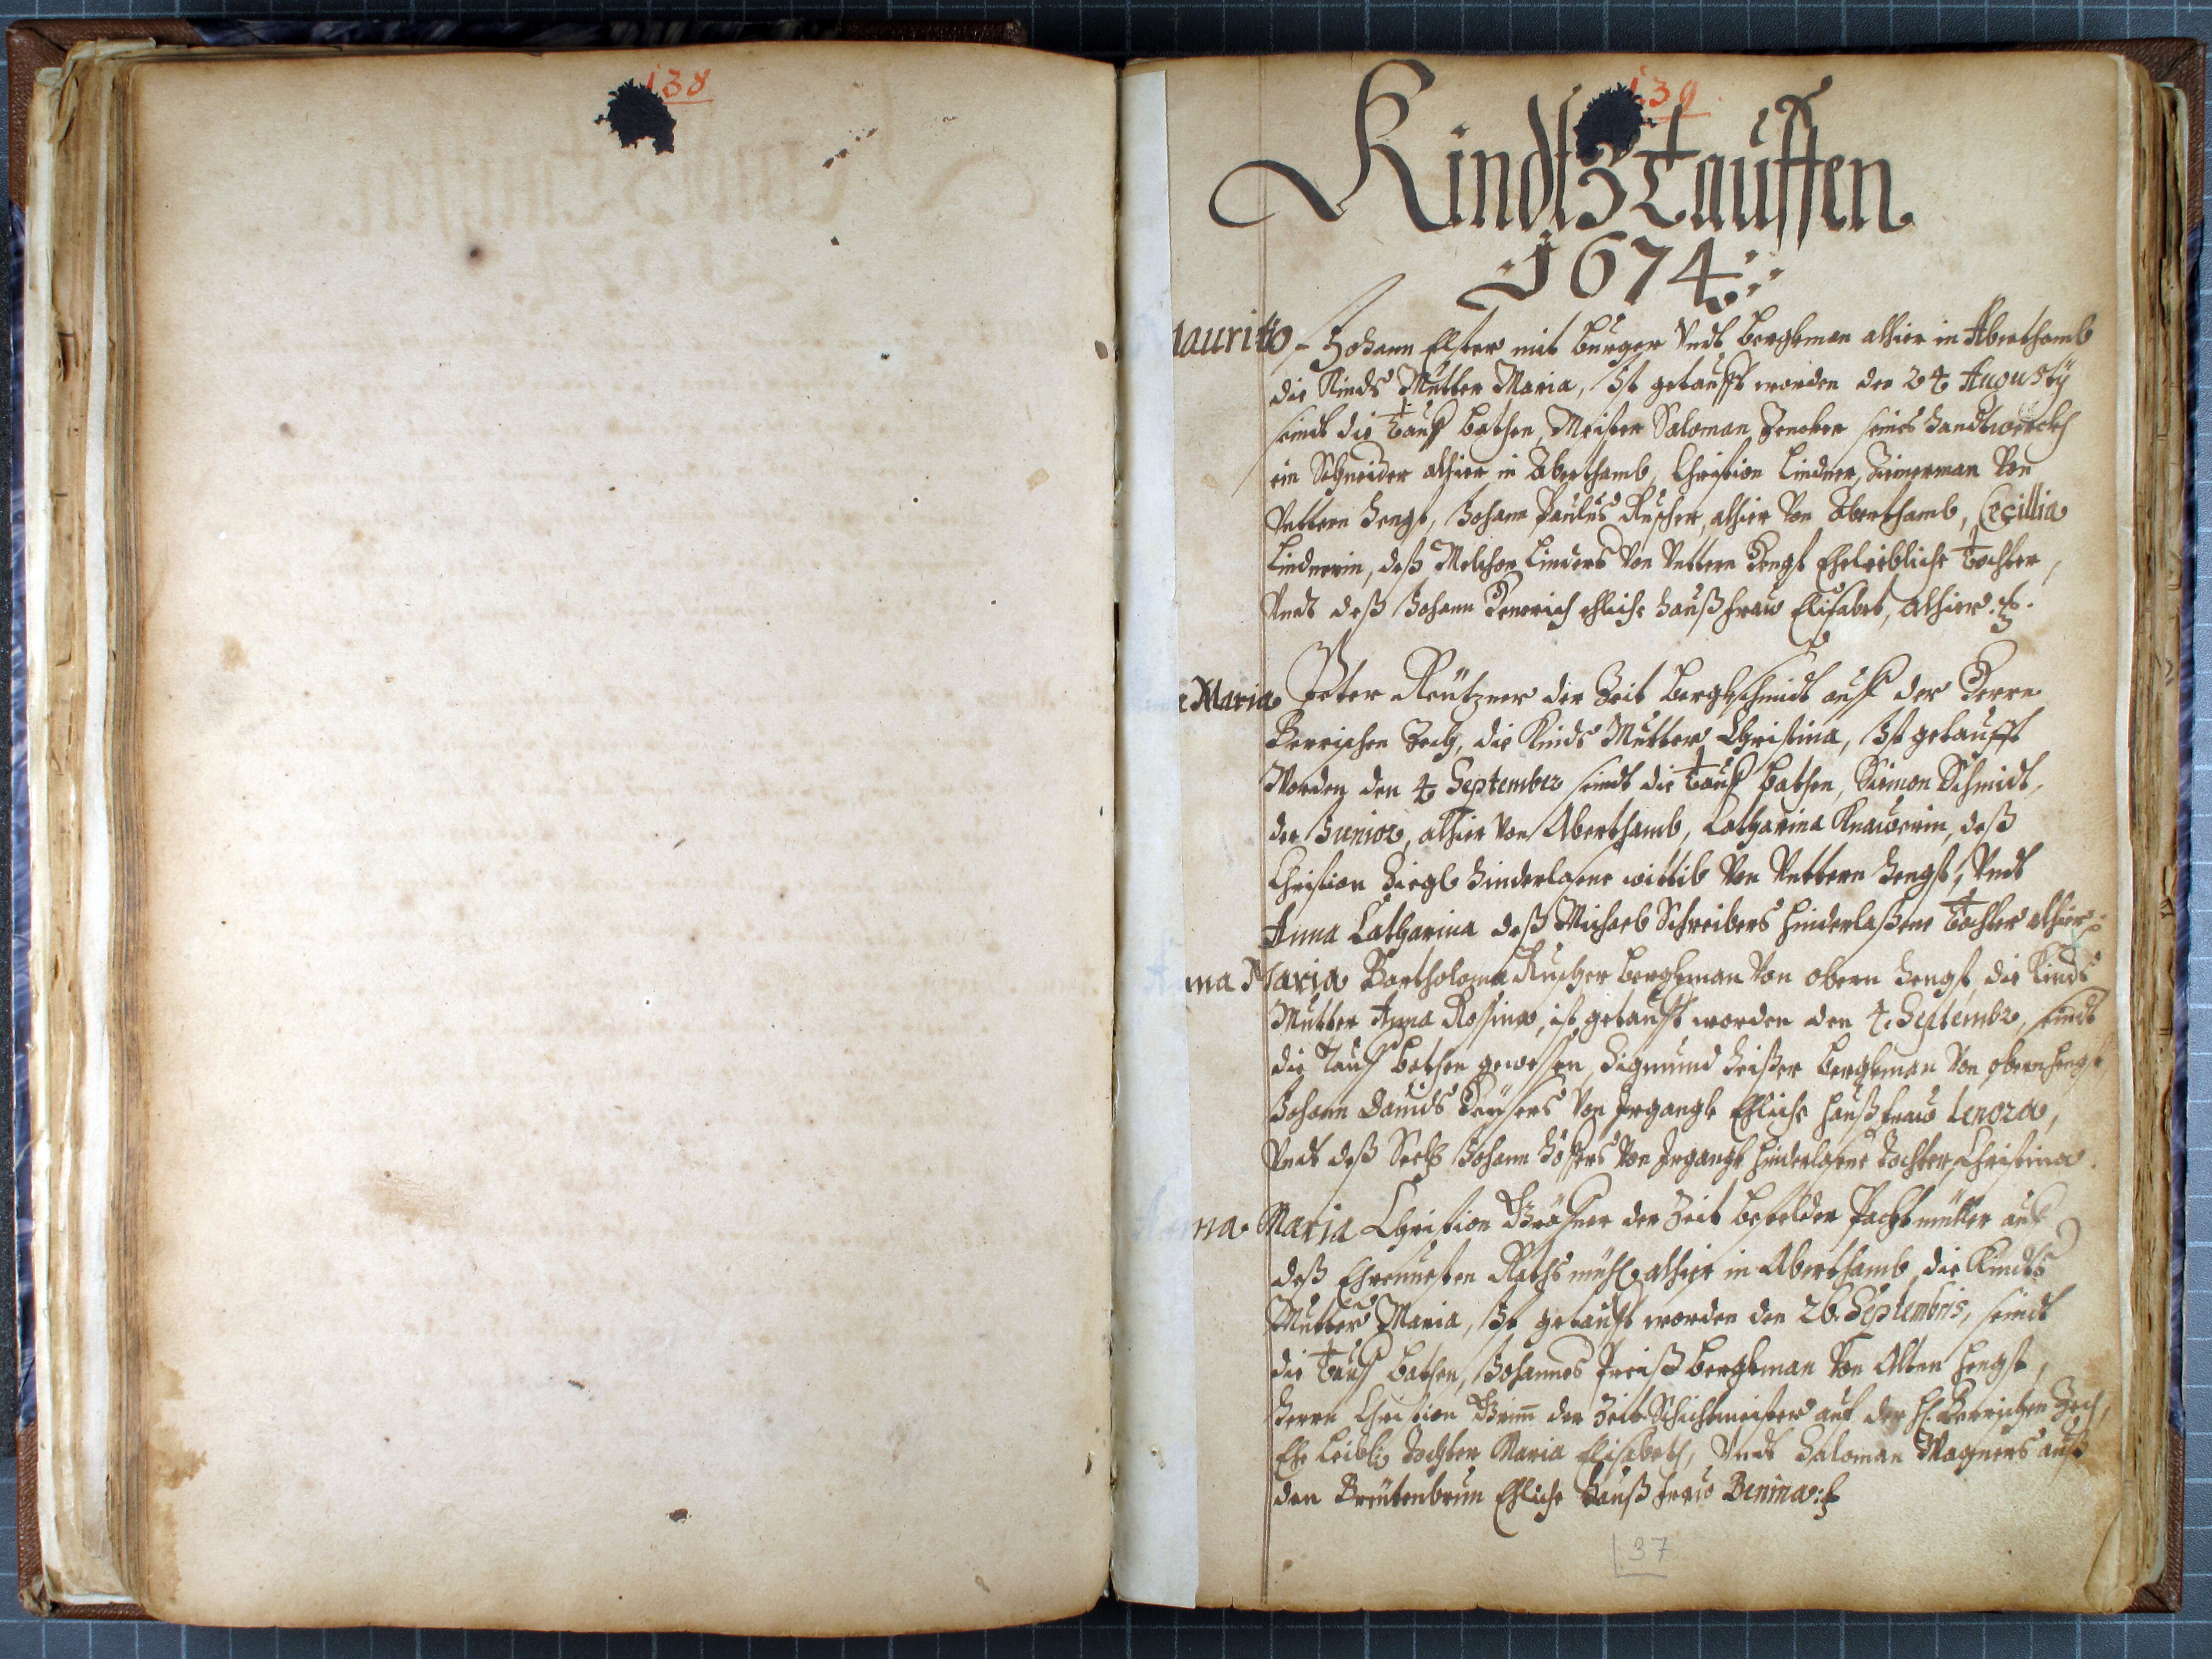 138
139
Kindtß Tauffen
1674
Mauritio Johann Elster mit burger Vndt bergkman alhier in Aberthamb
die Kinds Mutter Maria, Ist getaufft worden den 24 Augusty
seindt die Tauf bathen, Meister Saloman Zencker seines Handtwercks
ein Schneider alhier in Aberthamb, Christion Lindner, Zimerman Von
Vnttern Hengst, Johann Paulus Ruscher, alhier Von Aberthamb, Cecillia
Lindnerin, deß Melchor Linders Von Vnttern Hengst Eheleibliche Tochter,
Vndt deß Johann Henerich ehliche Haußfraw Elisabet, alhier
Maria Peter Reützner der Zeit bergkschmidt auff der Herrn
Zech, die Kinds Mutter Christina, Ist getaufft
Worden den 4 September seindt die Tauf bathen, Siemon Schmidt,
der Junior, alhier Von Aberthamb, Catharina Knauerin, deß
Christion Hiegl Hinderlasene wittib Von Vnttern Hengst, Vndt
Anna Catharina deß Michael Schreibers hinderlaßene Tochter alhier
Anna Maria Bartholoma Ruscher bergkman Von obern Hengst, die Kindts
Mutter Anna Rosina, ist getaufft worden den 4. Septembr, seindt
die Tauf bathen gewessen, Sigmund Heißer bergkman Von obern hengst
Johann Dauids Von Irgangk Ehliche haußfraw Lenora,
Vndt deß Seel Johann Von Irgangk hinderlasene Tochter, Christina.
Anna Maria Christion der Zeit bestelder Pachtmüller auf
deß Ehrnuesten Rathsmühl alhier in Aberthamb, die Kindts
Mutter Maria, Ist getaufft worden den 26. Septembris, seindt
die Tauf bathen, Johannes Preiß bergkman Von Alten hengst,
Herrn Christion Grim der Zeit Schichtmeister auf der Zech,
Ehe Leibl: Tochter Maria Elisabeth, Vndt Saloman Wagners auß
den Breütenbrun Ehliche Haußfraw Benina
37